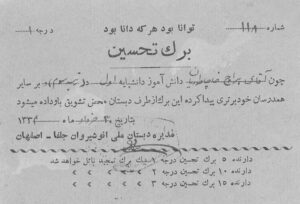 توانا بود هر که دانا بود
شماره ۱۱۸ درجه ۱
برك تحسین
چون آقای دانش آموز دانشپایه اول در بر سایر
همدرسان خود برتری پیدا کرده این برك از طرف دبستان محض تشویق باو داده میشود
بتاریخ ماه ۱۳۳۴
مدیره دبستان ملی انوشیروان جلفا - اصفهان
دارنده ۵ برك تحسین درجه ۱ یك برك تمجید نائل خواهد شد
دارنده ۱۰ برك تحسین درجه ۲ > > > >
دارنده ۱۵ برك تحسین درجه ۳ > > > >